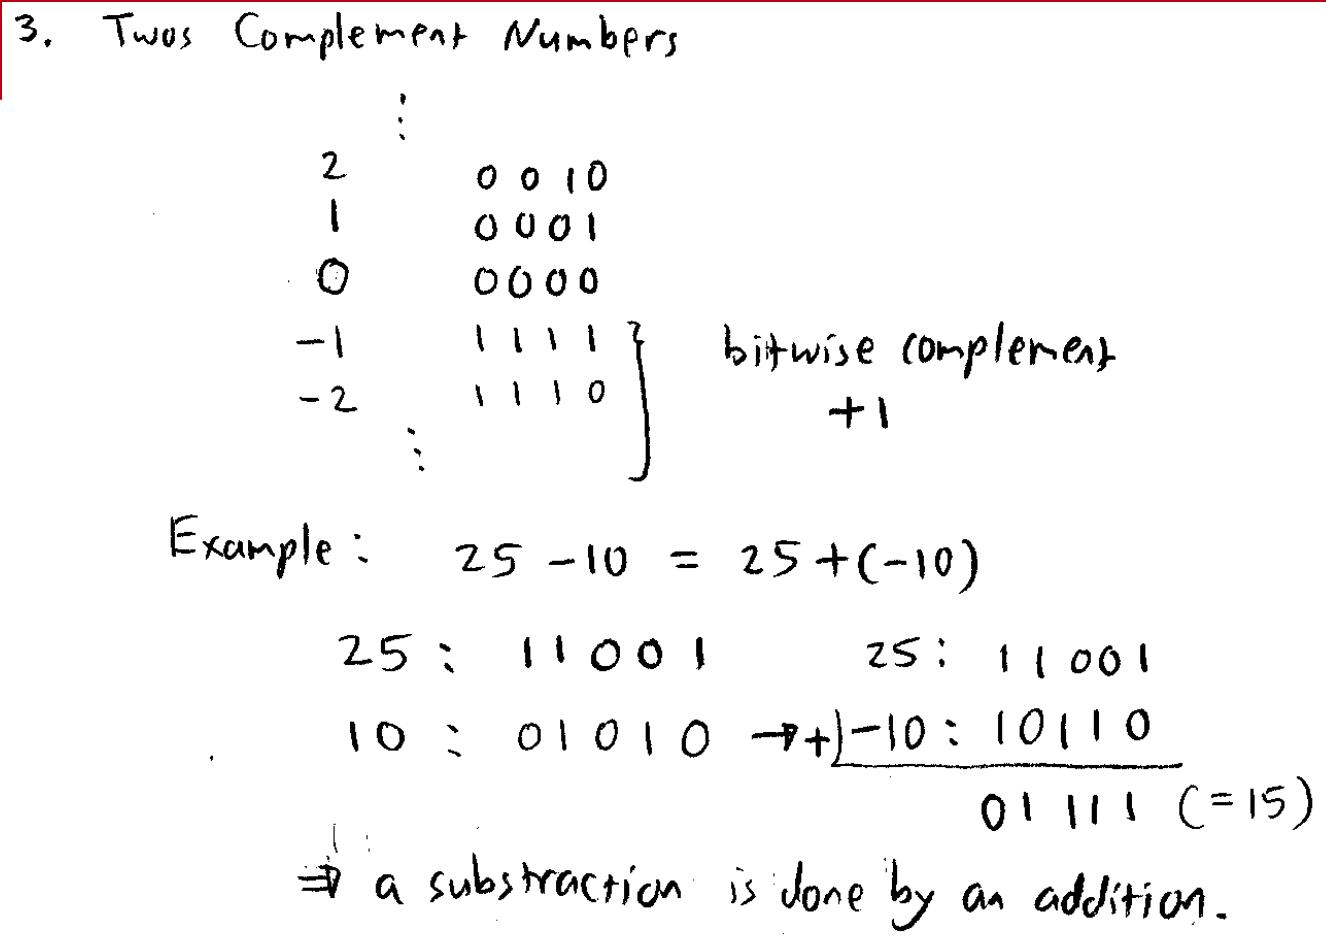 3. Twos Complement Numbers
⋮
2 0 0 1 0
1 0 0 0 1
0 0 0 0 0
-1 1 1 1 1 } bitwise complement
-2 1 1 1 0 +1
⋮
Example: 25 - 10 = 25 + (-10)
25 : 1 1 0 0 1 25 : 1 1 0 0 1
10 : 0 1 0 1 0 → +) -10 : 1 0 1 1 0
0 1 1 1 1 (= 15)
⇒ a substraction is done by an addition.